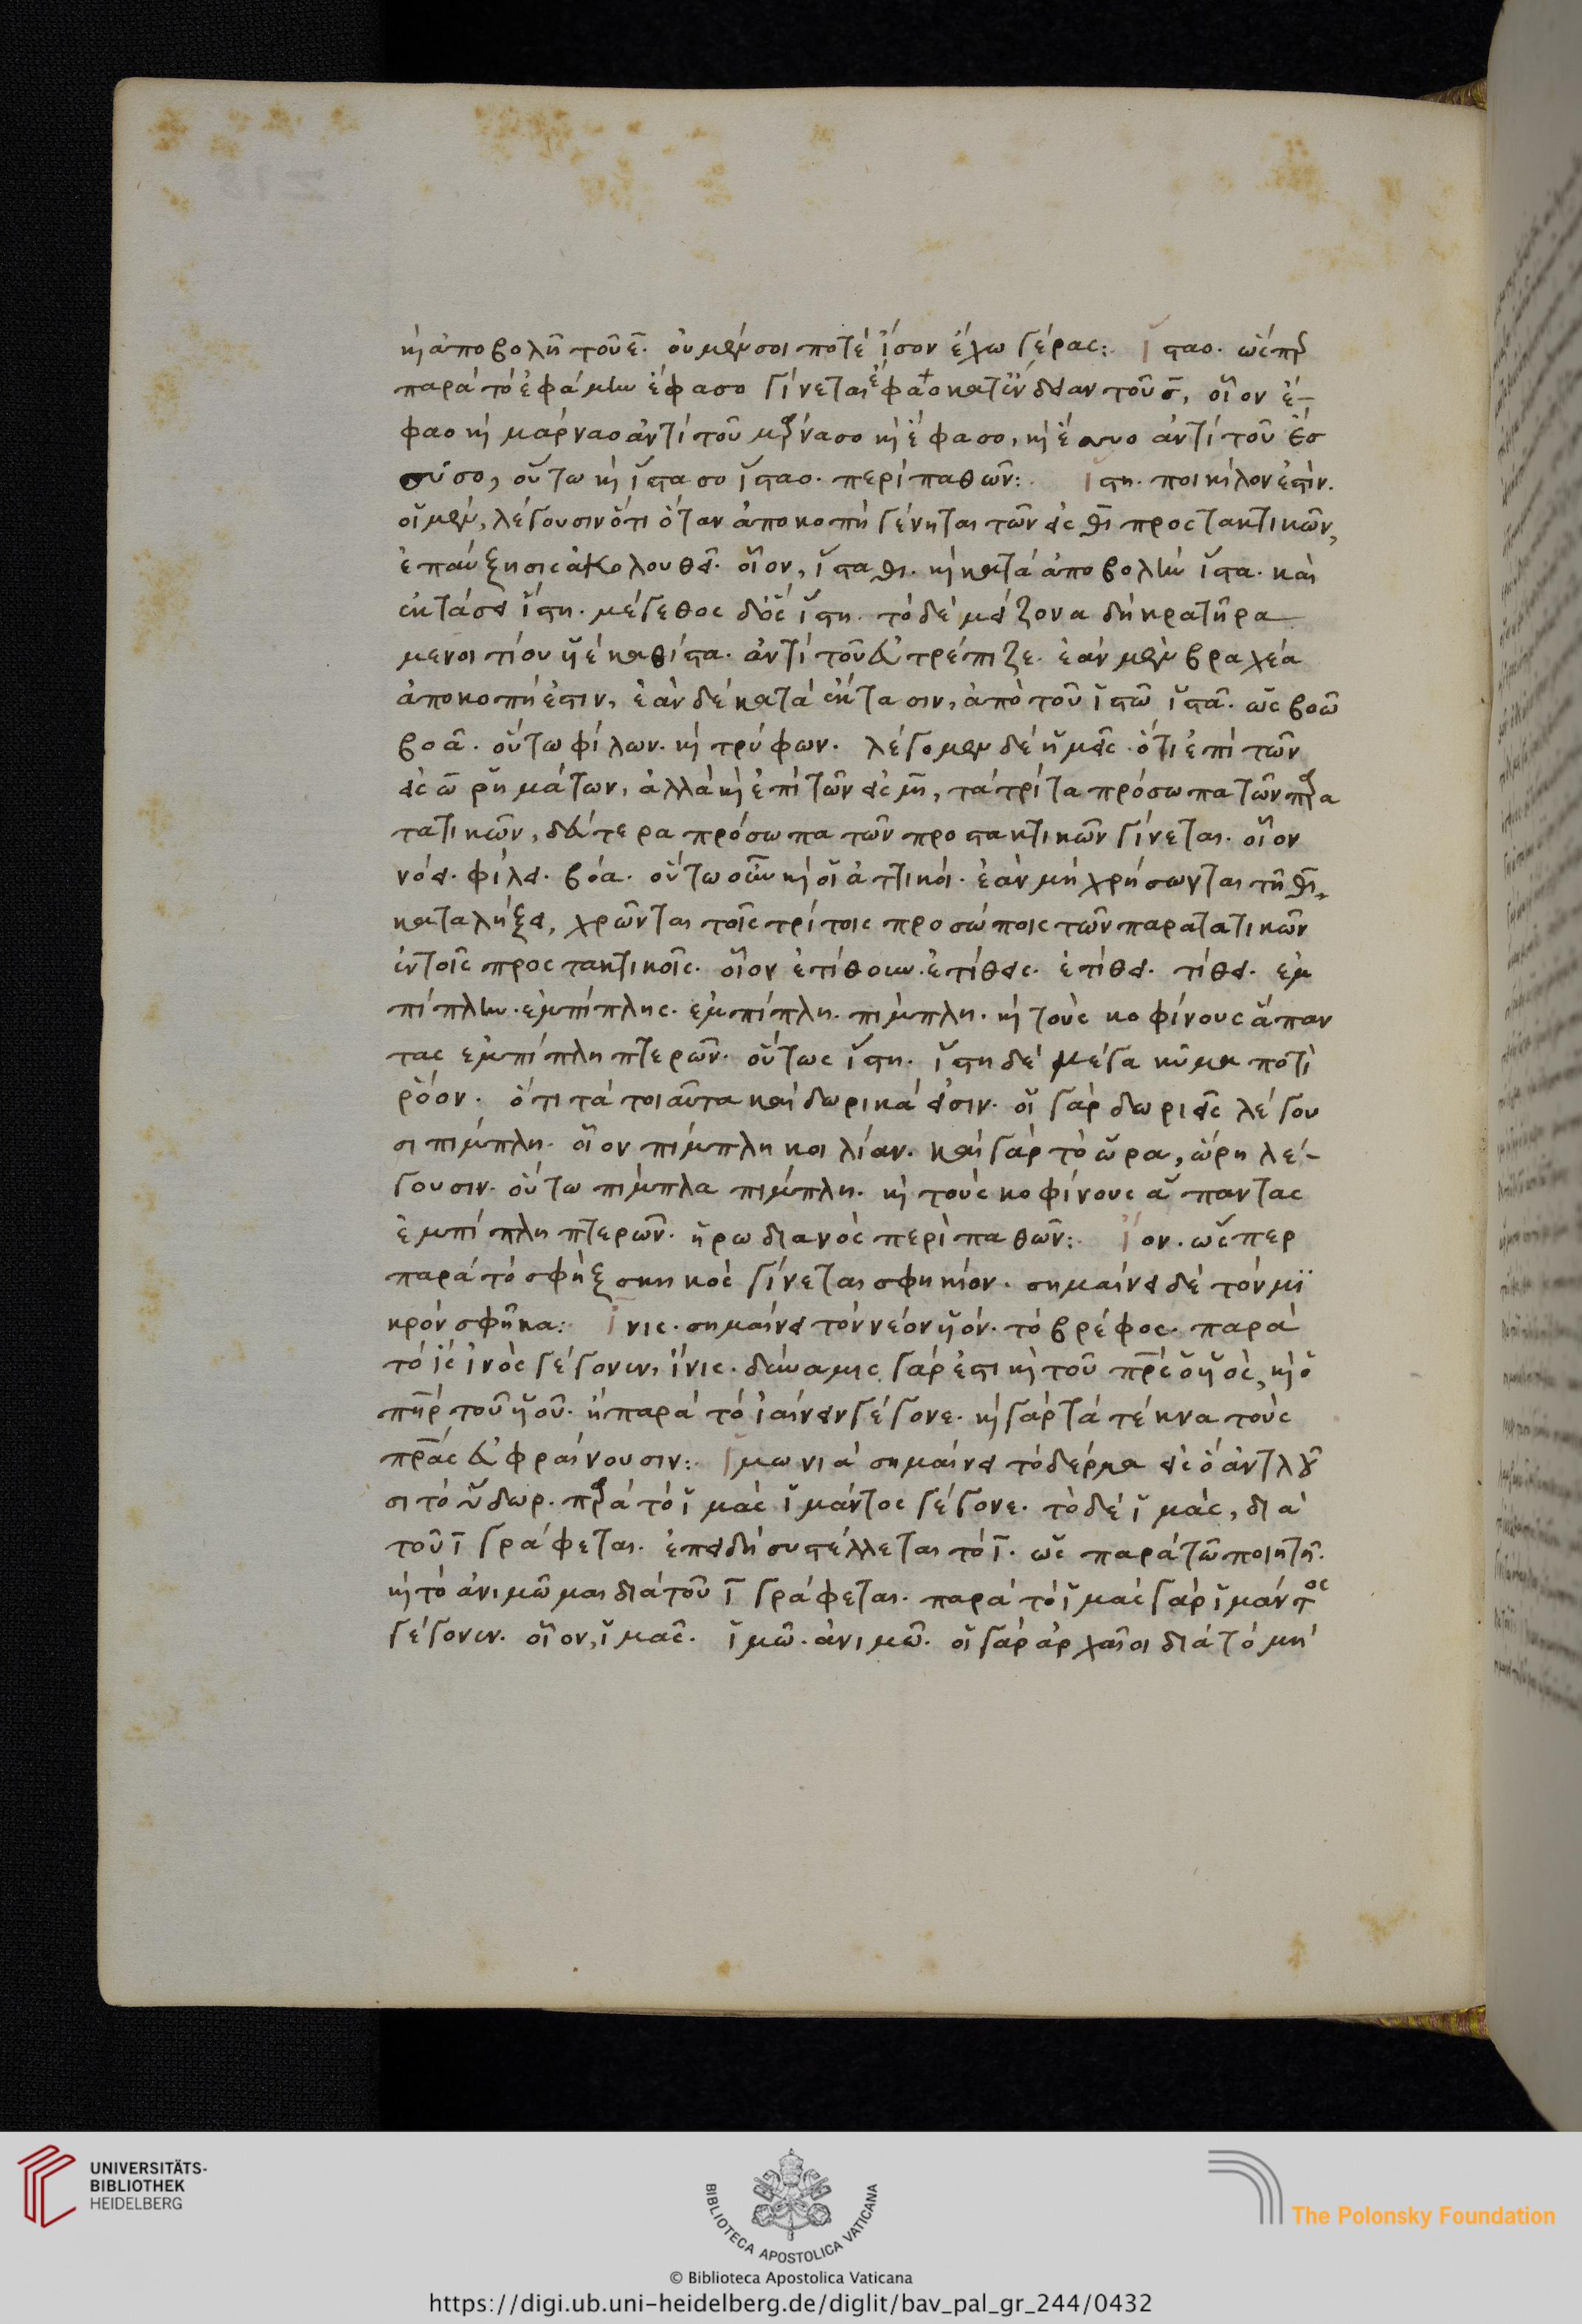 κὶ ἀποβολῆ τοῦ ε̄. οὐ μὲν σοι ποτὲ ἶσον ἔχω γέρας: Ἵστασο. ὥσπερ
παρὰ τὸ ἐφάμην ἔφασο γίνεται ἔφαο κατ' ἔνδειαν τοῦ σ̄, οἷον ἔ-
φαο κὶ μάρναο ἀντὶ τοῦ μάρνασο κὶ ἔφασο, κὶ ἔσσυο ἀντὶ τοῦ ἔσ
σύσο, οὕτω κὶ ἵστασο ἵσταο. περὶ παθῶν: Ἵστη. ποικίλον ἐστίν.
οἱ μὲν, λέγουσιν ὅτι ὅταν ἀποκοπὴ γένηται τῶν εἰς θῑ προστακτικῶν,
ἐπαύξησις ἀκολουθεῖ. οἷον, ἵσταθι. κὶ κατὰ ἀποβολὴν ἵστα. καὶ
ἐκτάσει ἵστη. μέγεθος δὸς ἵστη. τὸ δὲ μείζονα δὴ κρατῆρα
μενοιτίου ὑιὲ καθίστα. ἀντὶ τοῦ εὐτρέπιζε. ἐὰν μὲν βραχέα
ἀποκοπή ἐστιν, ἐὰν δὲ κατὰ ἔκτασιν, ἀπὸ τοῦ ἱστῶ ἱστᾶ. ὡς βοῶ
βοᾶ. οὕτω φίλων. κὶ τρύφων. λέγομεν δὲ ἡμεῖς. ὅτι ἐπὶ τῶν
εἰς ω̄ ῥημάτων, ἀλλὰ κὶ ἐπὶ τῶν εἰς μῑ, τὰ τρίτα πρόσωπα τῶν παρα
τατικῶν, δεύτερα πρόσωπα τῶν προστακτικῶν γίνεται. οἷον
νόει. φίλει. βόα. οὕτω οὖν κὶ οἱ ἀττικοὶ. ἐὰν μὴ χρήσωνται τῆ θῑ,
καταλήξει, χρῶνται τοῖς τρίτοις προσώποις τῶν παρατατικῶν
ἐν τοῖς προστακτικοῖς. οἷον ἐτίθουν. ἐτίθεις. ἐτίθει. τίθει. ἐμ
πίπλην. ἐμπίπλης. ἐμπίπλη. πίμπλη. κὶ τοὺς κοφίνους ἅπαν
τας ἐμπίπλη πτερῶν. οὕτως ἵστη. ἵστη δὲ μέγα κῦμα ποτὶ
ῥόον. ὅτι τὰ τοιαῦτα καὶ δωρικά εἰσιν. οἱ γὰρ δωριεῖς λέγου
σι πίμπλη. οἷον πίμπλη κοιλίαν. καὶ γὰρ τὸ ὥρα, ὥρη λέ-
γουσιν. οὕτω πίμπλα πίμπλη. κὶ τοὺς κοφίνους ἅπαντας
ἐμπίπλη πτερῶν. ἡρωδιανὸς περὶ παθῶν: Ἴον. ὥσπερ
παρὰ τὸ σφὴξ σφηκὸς γίνεται σφηκίον. σημαίνει δὲ τὸν μι
κρὸν σφῆκα: Ἶνις. σημαίνει τὸν νέον ὑιόν. τὸ βρέφος. παρὰ
τὸ ἲς ἰνὸς γέγονεν, ἶνις. δύναμις γάρ ἐστι κὶ τοῦ πρ̅ς ὁ ὑιὸς, κὶ ὁ
πη̅ρ τοῦ ὑιοῦ. ἢ παρὰ τὸ ἰαίνειν γέγονε. κὶ γὰρ τὰ τέκνα τοὺς
πρ̅ας εὐφραίνουσιν: Ἱμωνιὰ σημαίνει τὸ δέρμα εἰς ὃ ἀντλοῦ
σι τὸ ὕδωρ. παρὰ τὸ ἱμὰς ἱμάντος γέγονε. τὸ δὲ ἱμὰς, διὰ
τοῦ ῑ γράφεται. ἐπειδὴ συστέλλεται τὸ ῑ. ὡς παρὰ τῶ ποιητῆ.
κὶ τὸ ἀνιμῶμαι διὰ τοῦ ῑ γράφεται. παρὰ τὸ ἱμὰς γὰρ ἱμάντος
γέγονεν. οἷον, ἱμᾶς. ἱμῶ. ἀνιμῶ. οἱ γὰρ ἀρχαῖοι διὰ τὸ μὴ
UNIVERSITÄTS-
BIBLIOTHEK
HEIDELBERG
BIBLIOTECA APOSTOLICA VATICANA
The Polonsky Foundation
© Biblioteca Apostolica Vaticana
https://digi.ub.uni-heidelberg.de/diglit/bav_pal_gr_244/0432